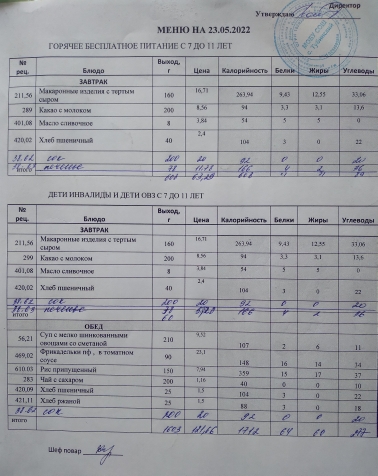 Директор
Утверждаю
МЕНЮ НА 23.05.2022
ГОРЯЧЕЕ БЕСПЛАТНОЕ ПИТАНИЕ С 7 ДО 11 ЛЕТ
№ рец. Блюдо Выход, г Цена Калорийность Белки Жиры Углеводы
ЗАВТРАК
211,56 Макаронные изделия с тертым сыром 160 16,71 263,94 9,43 12,55 33,06
289 Какао с молоком 200 8,56 94 3,3 3,1 13,6
401,08 Масло сливочное 8 3,84 54 5 5 0
420,02 Хлеб пшеничный 40 2,4 104 3 0 22
38.02 сок 200 20 92 0 0 20
печенье
итого
ДЕТИ ИНВАЛИДЫ И ДЕТИ ОВЗ С 7 ДО 11 ЛЕТ
№ рец. Блюдо Выход, г Цена Калорийность Белки Жиры Углеводы
ЗАВТРАК
211,56 Макаронные изделия с тертым сыром 160 16,71 263,94 9,43 12,55 33,06
299 Какао с молоком 200 8,56 94 3,3 3,1 13,6
401,08 Масло сливочное 8 3,84 54 5 5 0
420,02 Хлеб пшеничный 40 2,4 104 3 0 22
38.02 сок 200 20 92 0 0 20
печенье
ОБЕД
56,21 Суп с мелко шинкованными овощами со сметаной 210 9,52 107 2 6 11
469,02 Фрикадельки пф , в томатном соусе 90 23,1 148 16 14 34
610.03 Рис припущенный 150 7,94 359 15 17 37
283 Чай с сахаром 200 1,16 40 0 0 10
420,09 Хлеб пшеничный 25 104 3 0 22
421,11 Хлеб ржаной 25 1,5 88 3 0 18
сок 200 20 92 0 0 20
итого
Шеф повар